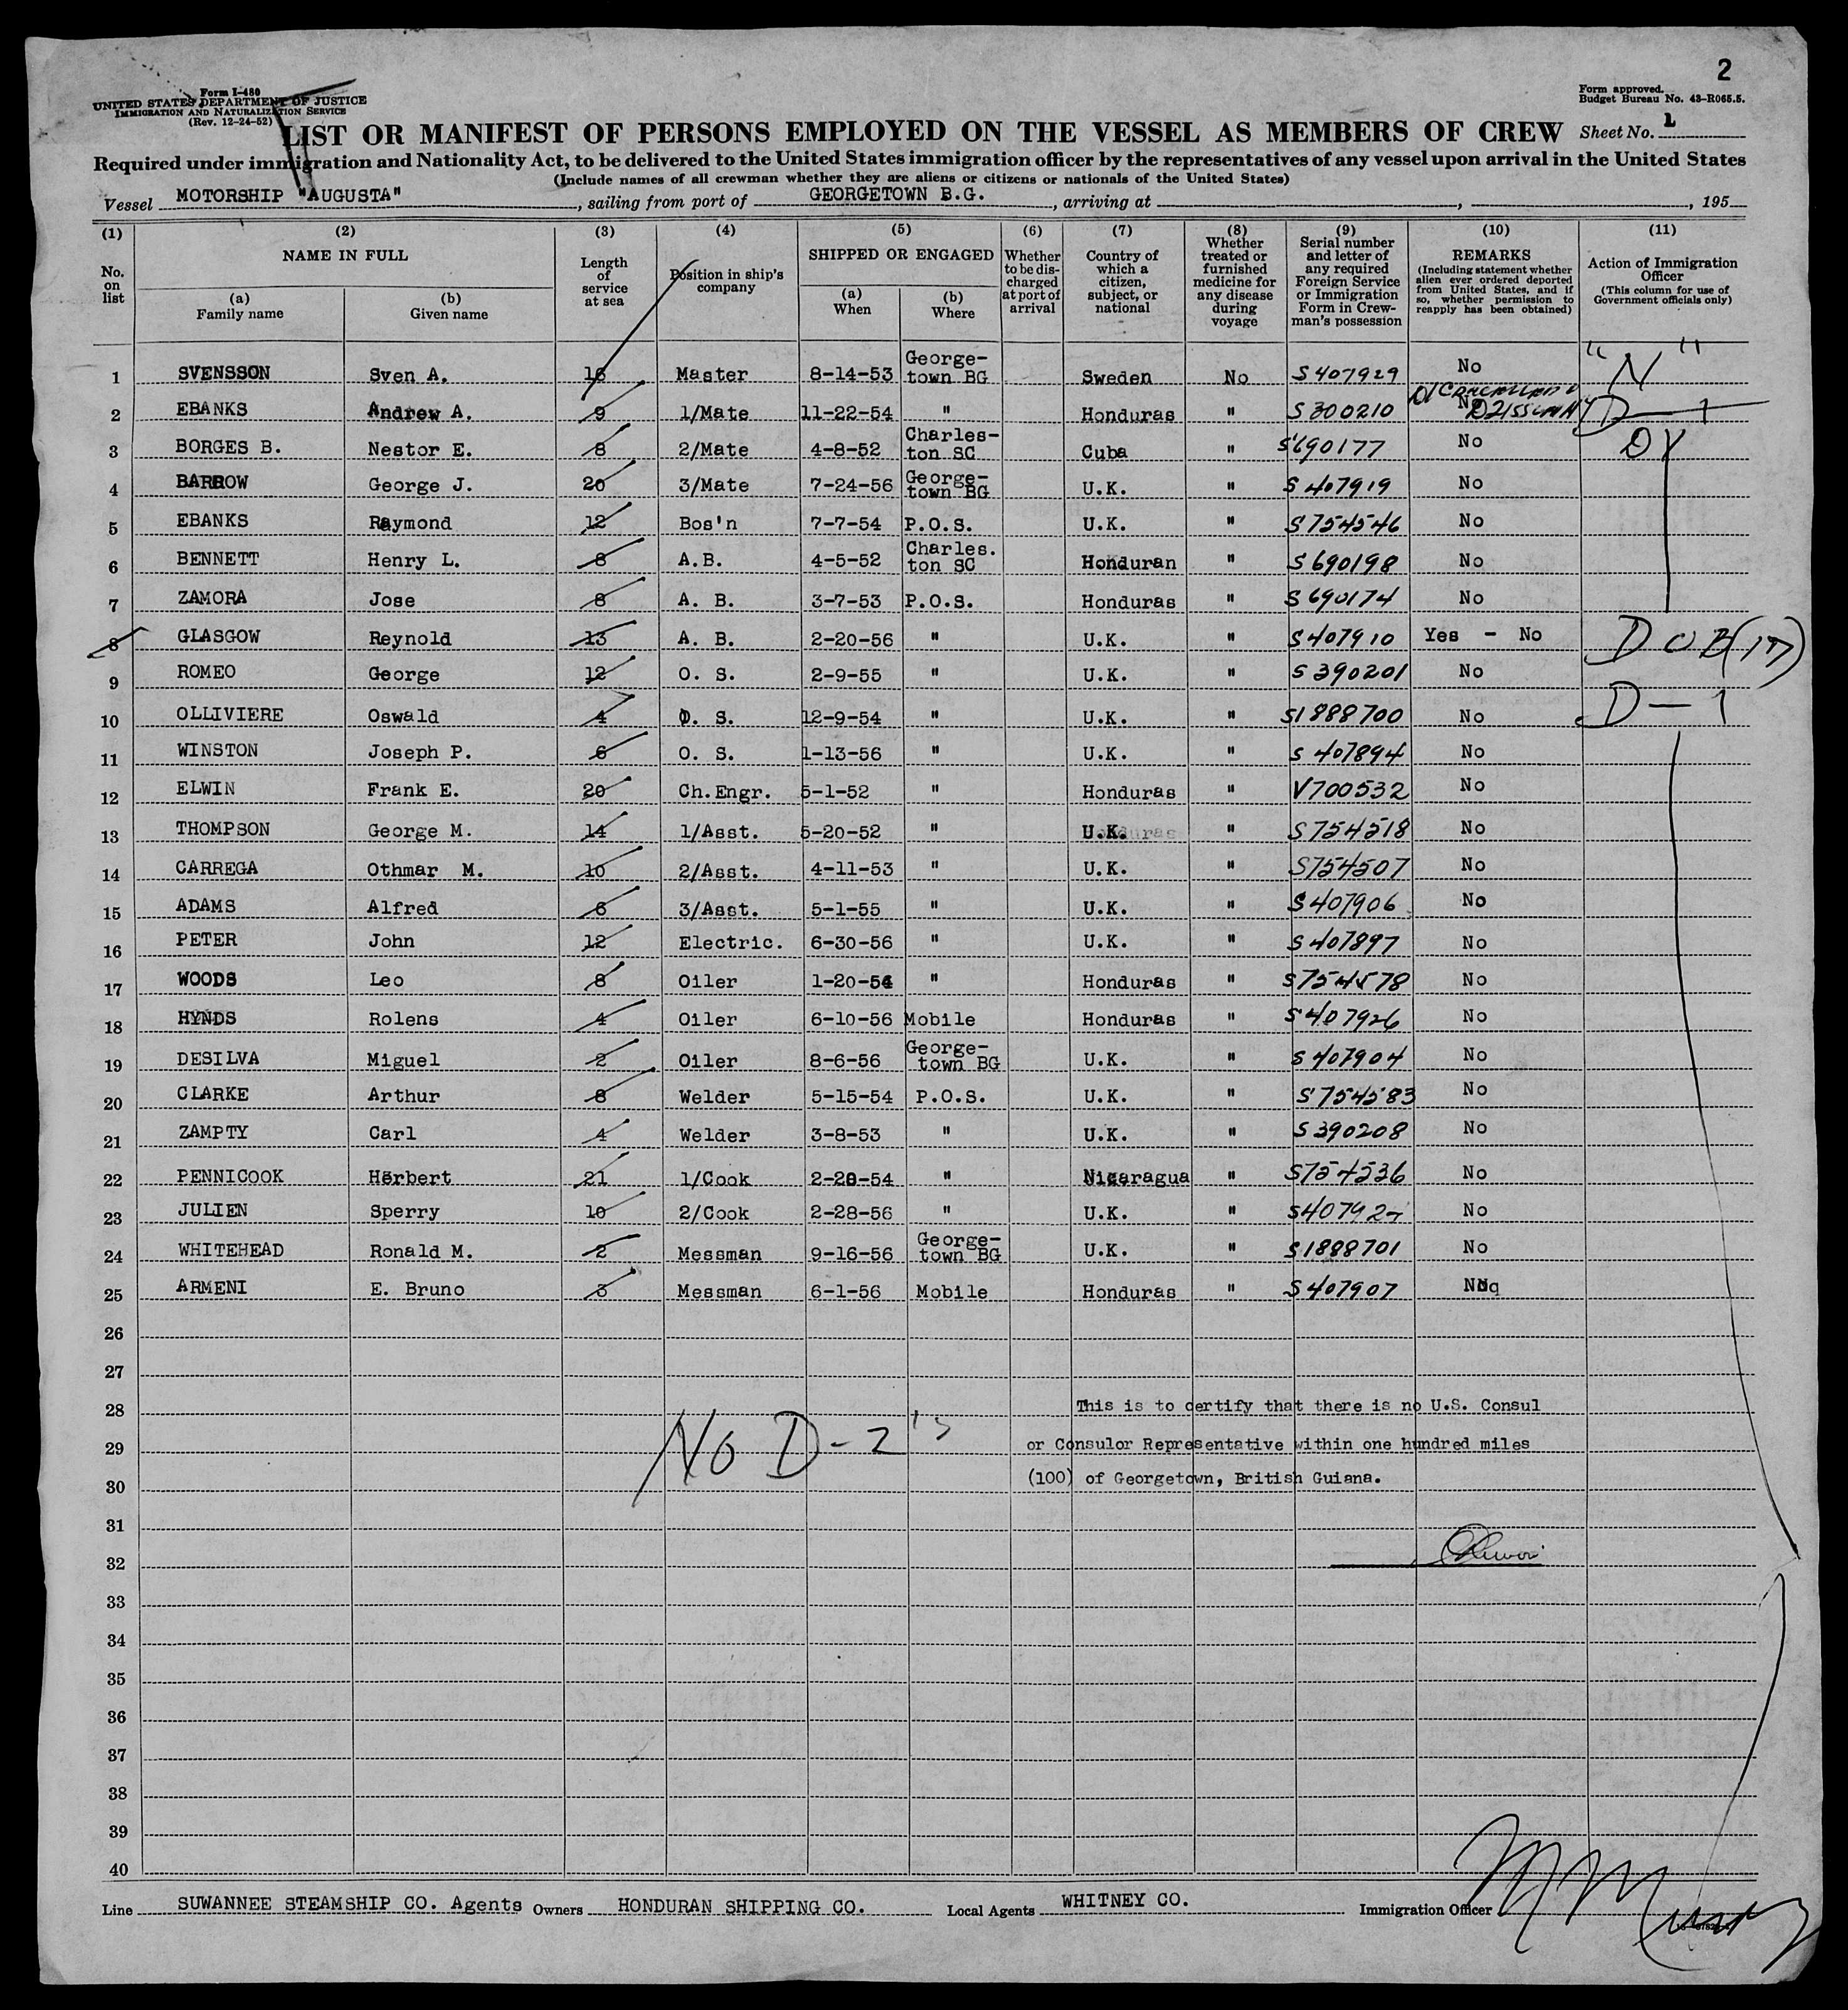 2
Form I-480
UNITED STATES DEPARTMENT OF JUSTICE
IMMIGRATION AND NATURALIZATION SERVICE
(Rev. 12-24-52)
Form approved.
Budget Bureau No. 43-R065.5.
LIST OR MANIFEST OF PERSONS EMPLOYED ON THE VESSEL AS MEMBERS OF CREW Sheet No. 1
Required under immigration and Nationality Act, to be delivered to the United States immigration officer by the representatives of any vessel upon arrival in the United States
(Include names of all crewman whether they are aliens or citizens or nationals of the United States)
Vessel MOTORSHIP "AUGUSTA", sailing from port of GEORGETOWN B.G., arriving at , , 195
(1) No. on list
(2) NAME IN FULL
(a) Family name
(b) Given name
(3) Length of service at sea
(4) Position in ship's company
(5) SHIPPED OR ENGAGED
(a) When
(b) Where
(6) Whether to be discharged at port of arrival
(7) Country of which a citizen, subject, or national
(8) Whether treated or furnished medicine for any disease during voyage
(9) Serial number and letter of any required Foreign Service or Immigration Form in Crewman's possession
(10) REMARKS (Including statement whether alien ever ordered deported from United States, and if so, whether permission to reapply has been obtained)
(11) Action of Immigration Officer (This column for use of Government officials only)
1 SVENSSON Sven A. 16 Master 8-14-53 Georgetown BG Sweden No S407929 No "N"
2 EBANKS Andrew A. 9 1/Mate 11-22-54 " Honduras " S300210 No D-1
3 BORGES B. Nestor E. 8 2/Mate 4-8-52 Charleston SC Cuba " S690177 No
4 BARROW George J. 20 3/Mate 7-24-56 Georgetown BG U.K. " S407919 No
5 EBANKS Raymond 12 Bos'n 7-7-54 P.O.S. U.K. " S754546 No
6 BENNETT Henry L. 8 A.B. 4-5-52 Charles.ton SC Honduran " S690198 No
7 ZAMORA Jose 8 A. B. 3-7-53 P.O.S. Honduras " S690174 No
8 GLASGOW Reynold 13 A. B. 2-20-56 " U.K. " S407910 Yes - No
9 ROMEO George 12 O. S. 2-9-55 " U.K. " S390201 No
10 OLLIVIERE Oswald 4 O. S. 12-9-54 " U.K. " S1888700 No D-1
11 WINSTON Joseph P. 6 O. S. 1-13-56 " U.K. " S407894 No
12 ELWIN Frank E. 20 Ch.Engr. 5-1-52 " Honduras " V700532 No
13 THOMPSON George M. 14 1/Asst. 5-20-52 " U.K. " S754518 No
14 CARREGA Othmar M. 10 2/Asst. 4-11-53 " U.K. " S754507 No
15 ADAMS Alfred 6 3/Asst. 5-1-55 " U.K. " S407906 No
16 PETER John 12 Electric. 6-30-56 " U.K. " S407897 No
17 WOODS Leo 8 Oiler 1-20-54 " Honduras " S754578 No
18 HYNDS Rolens 4 Oiler 6-10-56 Mobile Honduras " S407926 No
19 DESILVA Miguel 2 Oiler 8-6-56 Georgetown BG U.K. " S407904 No
20 CLARKE Arthur 8 Welder 5-15-54 P.O.S. U.K. " S754583 No
21 ZAMPTY Carl 4 Welder 3-8-53 " U.K. " S390208 No
22 PENNICOOK Herbert 21 1/Cook 2-28-54 " Nicaragua " S754536 No
23 JULIEN Sperry 10 2/Cook 2-28-56 " U.K. " No
24 WHITEHEAD Ronald M. 2 Messman 9-16-56 Georgetown BG U.K. " S1888701 No
25 ARMENI E. Bruno 3 Messman 6-1-56 Mobile Honduras " S407907
26
27
28 This is to certify that there is no U.S. Consul
29 NO D-2's or Consulor Representative within one hundred miles
30 (100) of Georgetown, British Guiana.
31
32
33
34
35
36
37
38
39
40
Line SUWANNEE STEAMSHIP CO. Agents Owners HONDURAN SHIPPING CO. Local Agents WHITNEY CO. Immigration Officer